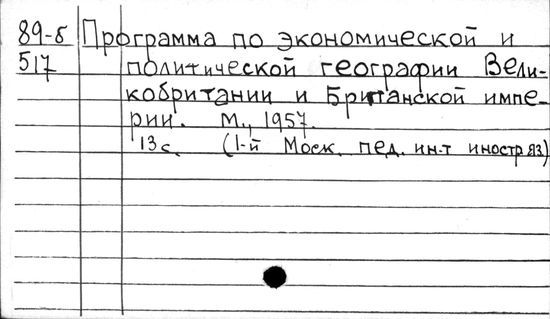 89-б Программа по экономической и
517 политической географии Вели-
кобритании и Британской импе-
рии. М., 1957.
13 с. (1-й Моск. пед. ин-т иностр яз)